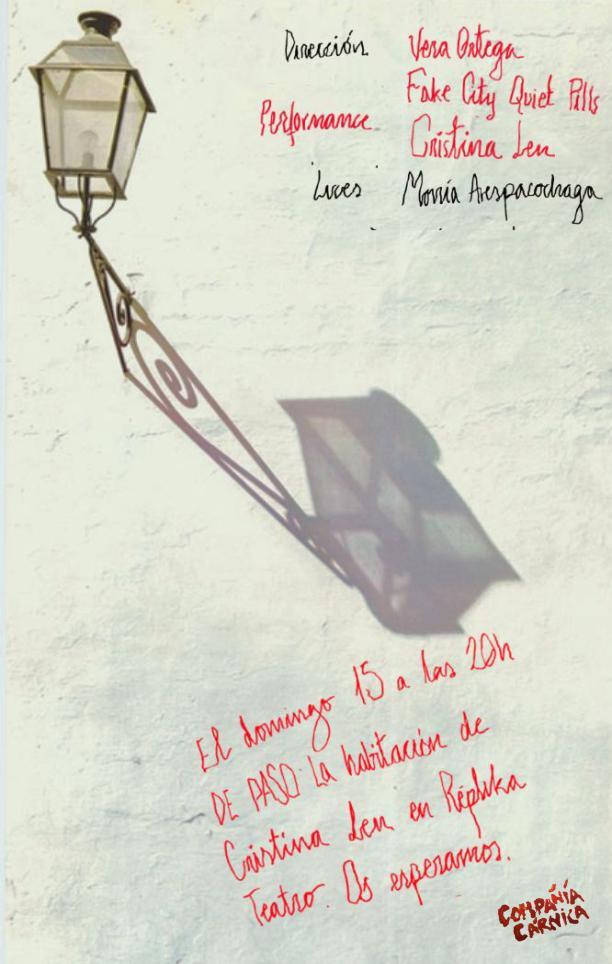 Dirección Vera Ortega
Fake City Quiet Pills
Performance Cristina Len
Luces
El domingo 15 a las 20h
DE PASO: La habitación de
Cristina Len en Réplika
Teatro. Os esperamos.
COMPAÑÍA
CÁRNICA